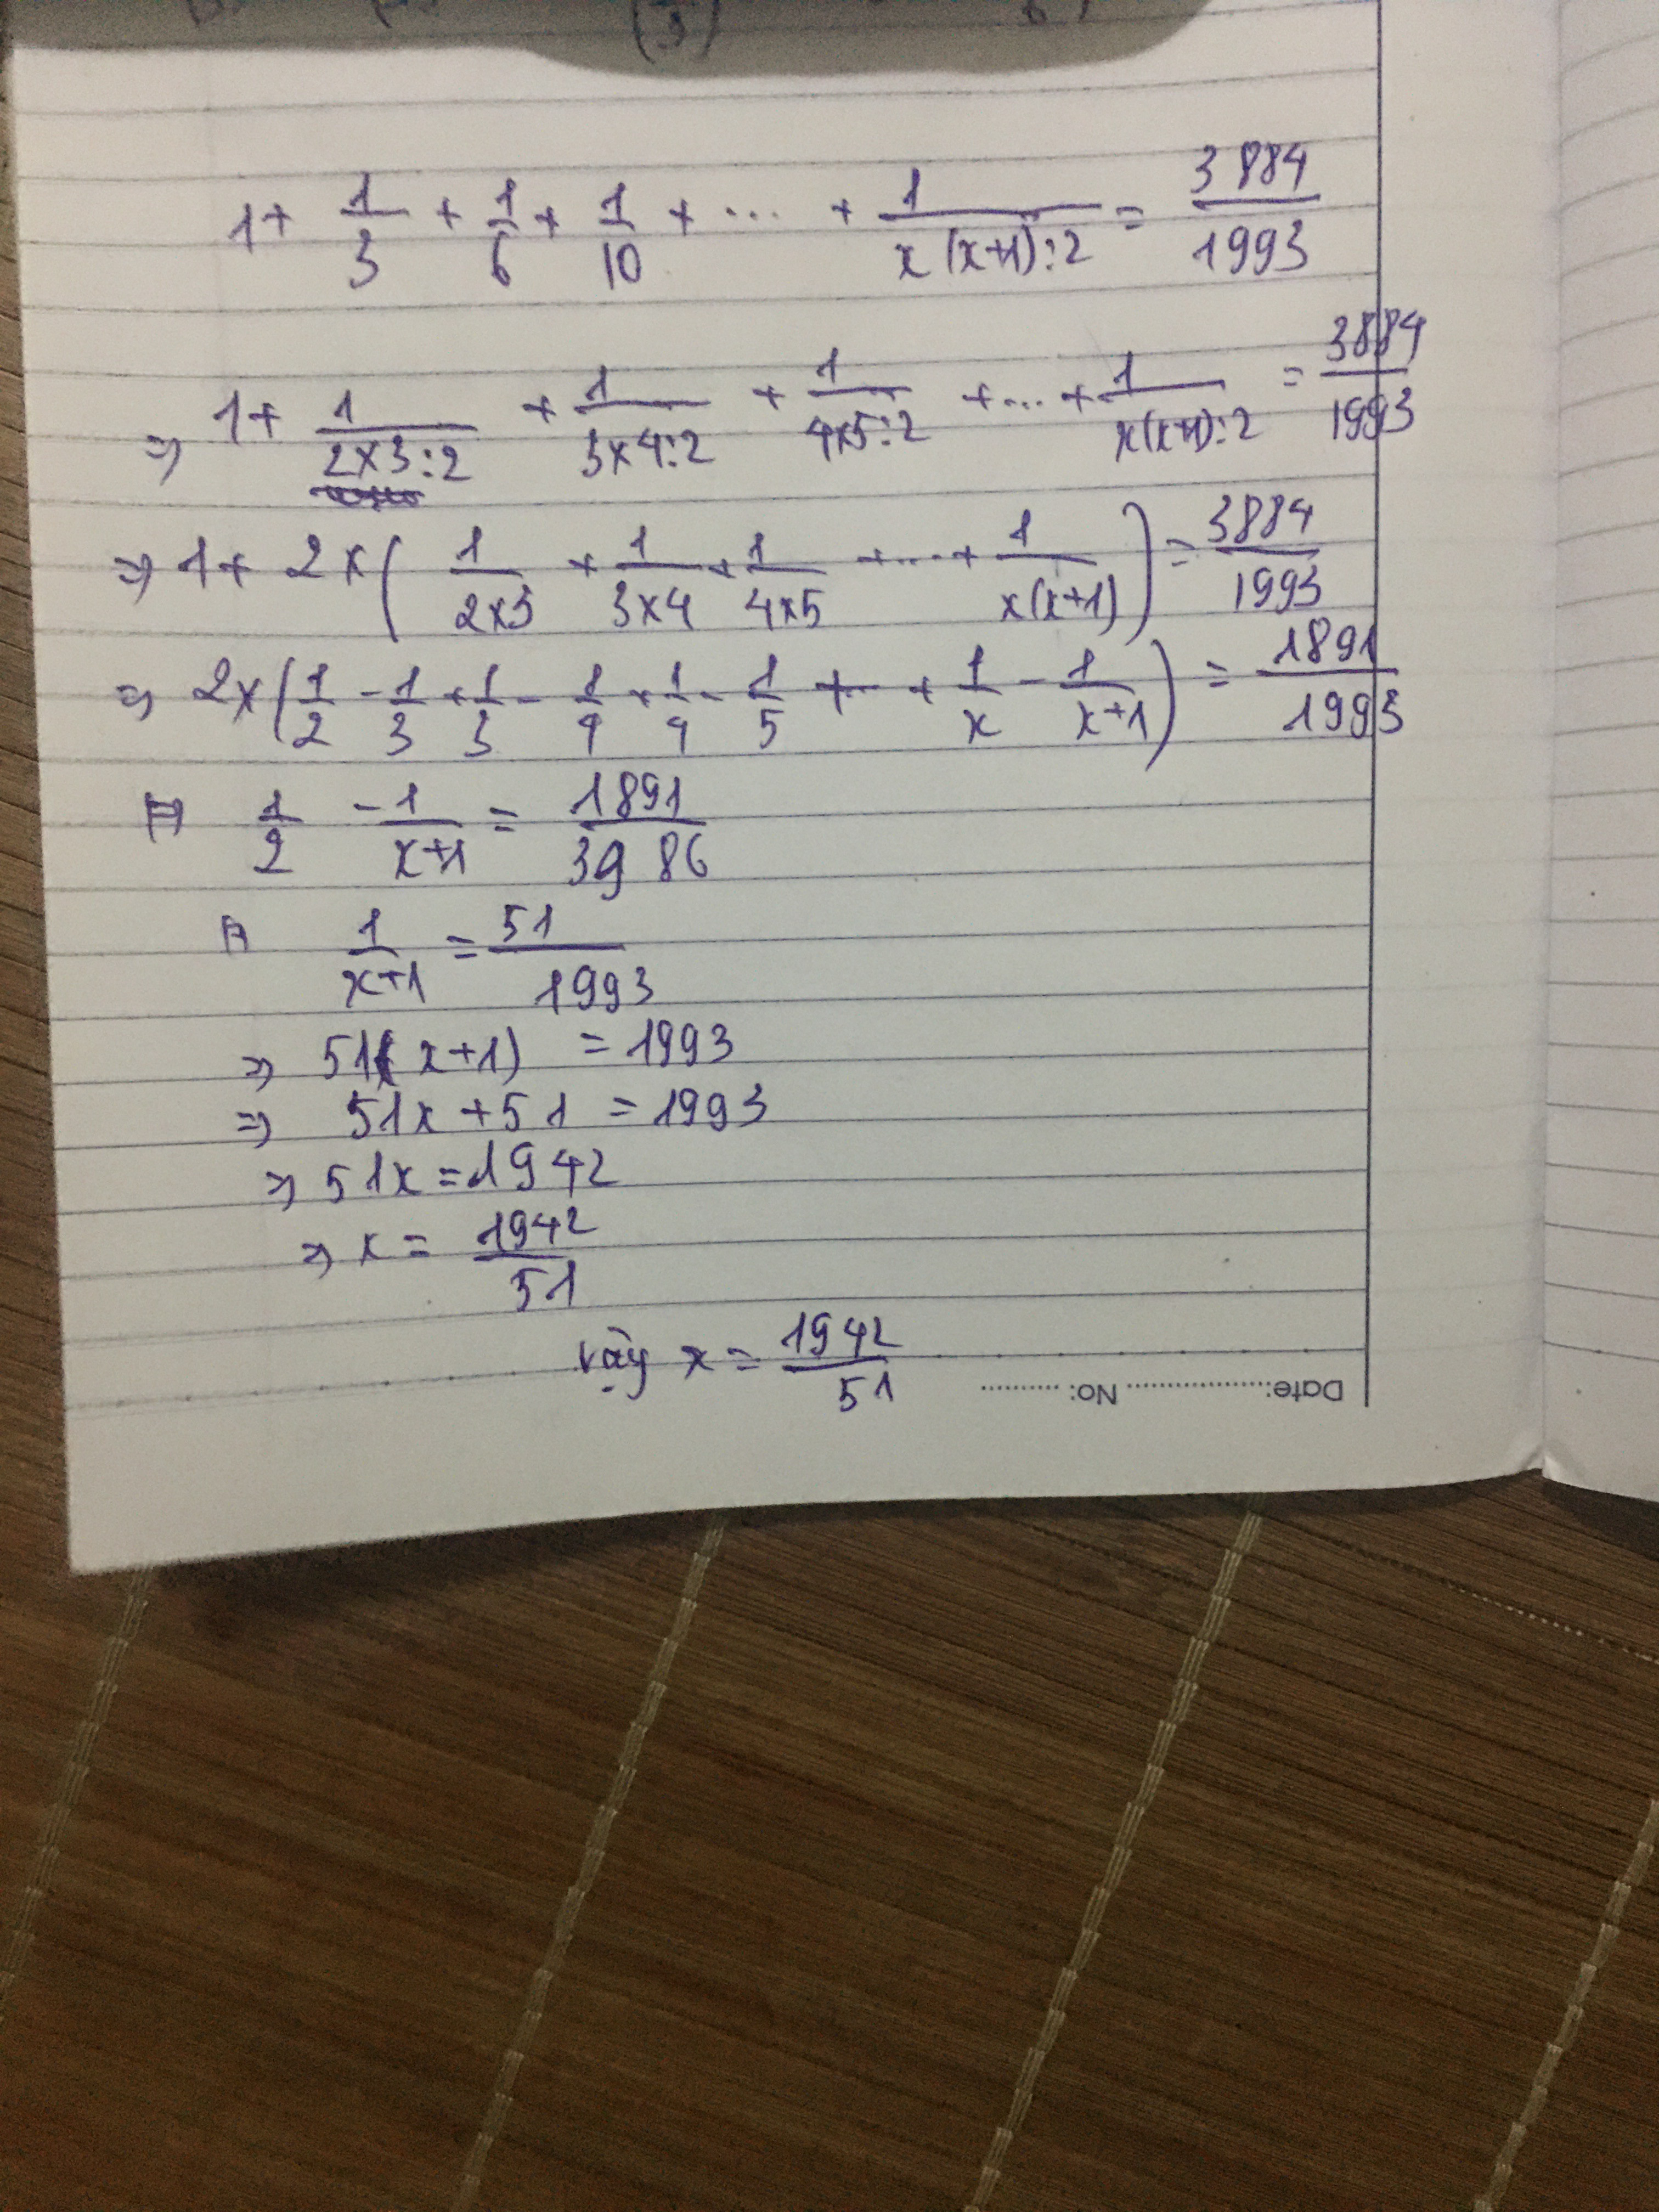 1 + 1/3 + 1/6 + 1/10 + ... + 1/x(x+1):2 = 3884/1993
=> 1 + 1/2x3:2 + 1/3x4:2 + 1/4x5:2 + ... + 1/x(x+1):2 = 3884/1993
=> 1 + 2x(1/2x3 + 1/3x4 + 1/4x5 + ... + 1/x(x+1)) = 3884/1993
=> 2x(1/2 - 1/3 + 1/3 - 1/4 + 1/4 - 1/5 + ... + 1/x - 1/x+1) = 1891/1993
1/2 - 1/x+1 = 1891/3986
1/x+1 = 51/1993
=> 51(x+1) = 1993
=> 51x + 51 = 1993
=> 51x = 1942
=> x = 1942/51
vậy x = 1942/51
Date: ........... No: ...........